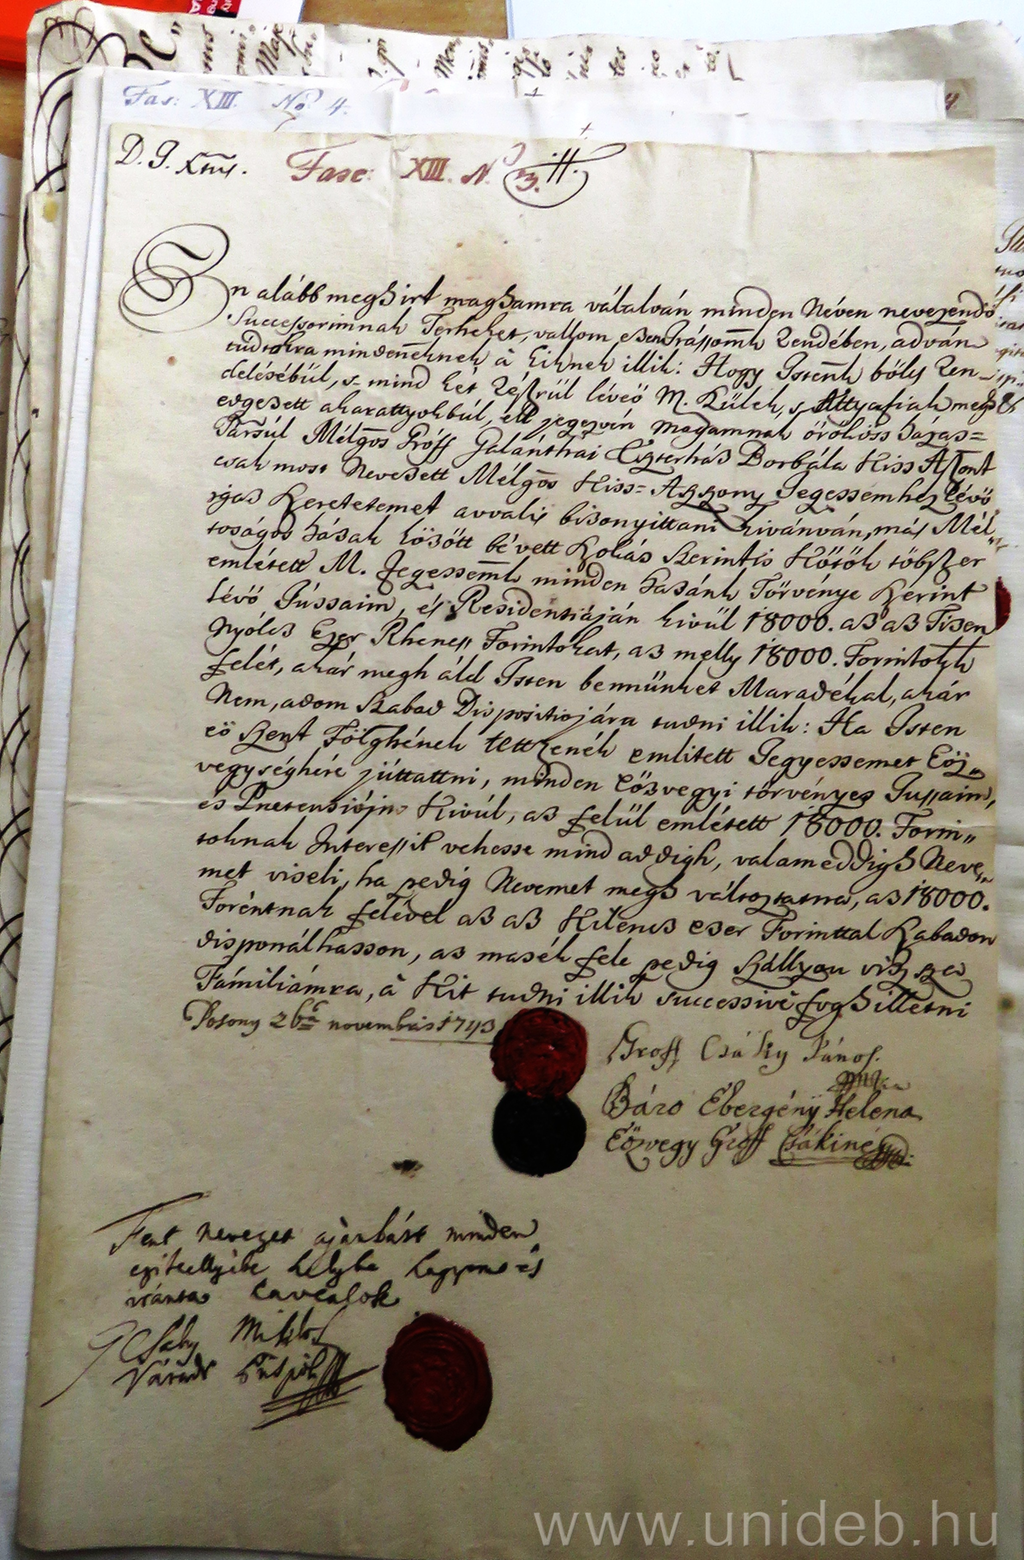 Fas: XIII. No 4.
D. J. Xtus.
Fasc: XIII. N. 3.
Én alább meghirt maghamra válalván minden Néven nevezendő
Successorimnak Terheket, vallom ezen Irássomk rendében, adván
tudtokra mindeneknek à kiknek illik: Hogy Istenk bölts Ren
delésébűl, s mind két részrűl lévő M. Szülék, s Attyafiak megh
edgezett akarattyokbúl, el jegezvén magamnak örökös házas=
Társúl Mélgos Gróff Galánthai Eszterhás Borbála Kiss Aszont
csak most Nevezett Mélgos Kiss=Aszszony Jegessemhez lévő
igas szeretetemet avvalis bizonyittani kivánván, más Mél
toságos házak között bévett szokás szerintis kötök többszer
emlétett M. Jegessemk minden hazánk Törvénye szerint
lévő Jússain, és Residentiáján kivűl 18000. az az Tizen
Nyólcz Ezer Rhenes Forintokat, az melly 18000. Forintokk
felét, akár megh áld Isten bennűnket Maradékal, akár
Nem, adom szabad Dispositiojára tudni illik: Ha Isten
eö szent Fölghének tettzenék emlitett Jegyessemet Eöz
vegységhére júttattni, minden Eözvegyi törvényes Jussain,
és Praetensiójn Kivűl, az felűl emlétett 18000. Forin
toknak Interessit vehesse mind addigh, valameddigh Neve
met viseli, ha pedig Nevemet megh változtatna, az 18000.
Foréntnak felével az az Kilencz ezer Forinttal szabadon
disponálhasson, az masék fele pedig szállyon viszsza
Fámiliámra, à Kit tudni illik successivè fogh illetni
Posony 26ta novembris 1743
Groff Csáky János.
mpria
Báro Ebergényi Helena
Eözvegy Groff Csákiné
Fent nevezet ajanlást minden
czikellyibe helybe hagyom és
iránta caveálok
G Csaky Miklos
Váradi Püspök
www.unideb.hu